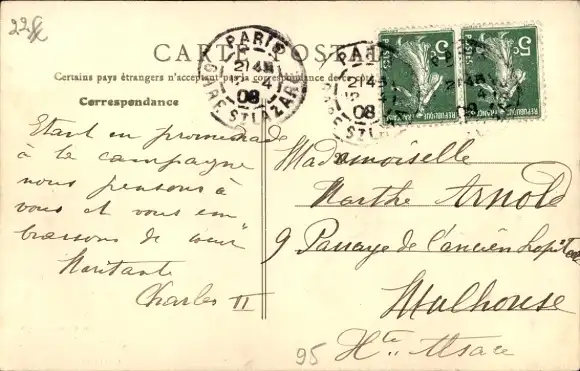 22
CARTE POSTALE
Certains pays étrangers n'acceptent pas la correspondance de ce côté
Correspondance
PARIS
21 45
12 - 4
08
GARE ST LAZARE
PARIS
21 45
12 - 4
08
GARE ST LAZARE
5c
POSTES
REPUBLIQUE FRANCAISE
5c
POSTES
REPUBLIQUE FRANCAISE
Etant en promenade
à la campagne
nous pensons à
vous et vous em
brassons de coeur
Charles II
Mademoiselle
Marthe Arnold
9 Passage de l'ancien hopital
Mulhouse
Hte Alsace
95